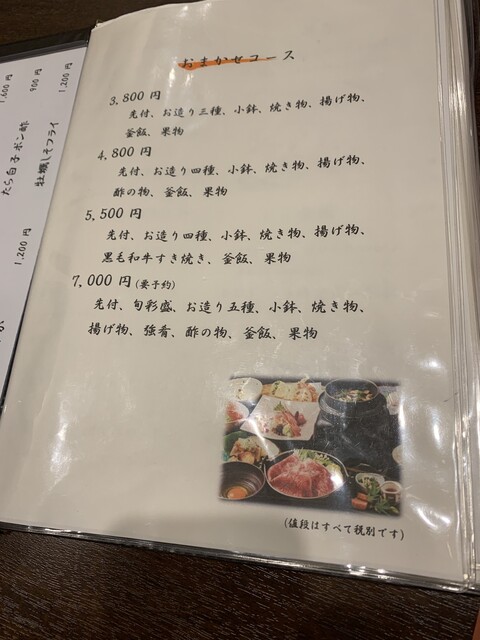 おまかせコース
3.800 円
先付、お造り三種、小鉢、焼き物、揚げ物、
釜飯、果物
4.800 円
先付、お造り四種、小鉢、焼き物、揚げ物、
酢の物、釜飯、果物
5.500 円
先付、お造り四種、小鉢、焼き物、揚げ物、
黒毛和牛すき焼き、釜飯、果物
7.000 円(要予約)
先付、旬彩盛、お造り五種、小鉢、焼き物、
揚げ物、強肴、酢の物、釜飯、果物
(値段はすべて税別です)
1,200 円
牡蠣しそフライ
900 円
たら白子ポン酢
1,600 円
1,200 円